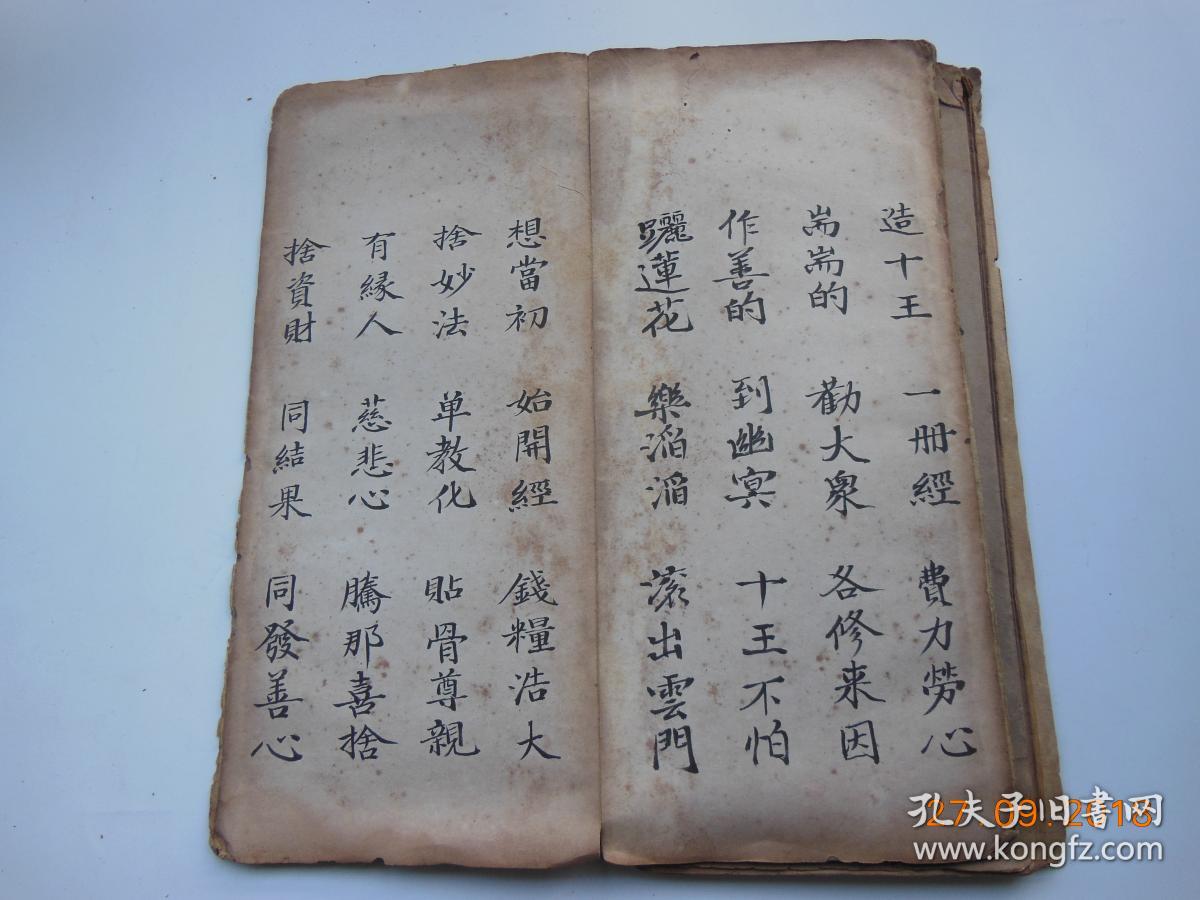 造十王 一冊經 費力勞心
耑耑的 勸大衆 各修来因
作善的 到幽冥 十王不怕
躧蓮花 樂滔滔 滾出雲門
想當初 始開經 錢糧浩大
捨妙法 单教化 貼骨尊親
有緣人 慈悲心 騰那喜捨
捨資財 同結果 同發善心
27.09.2018
孔夫子旧书网
www.kongfz.com